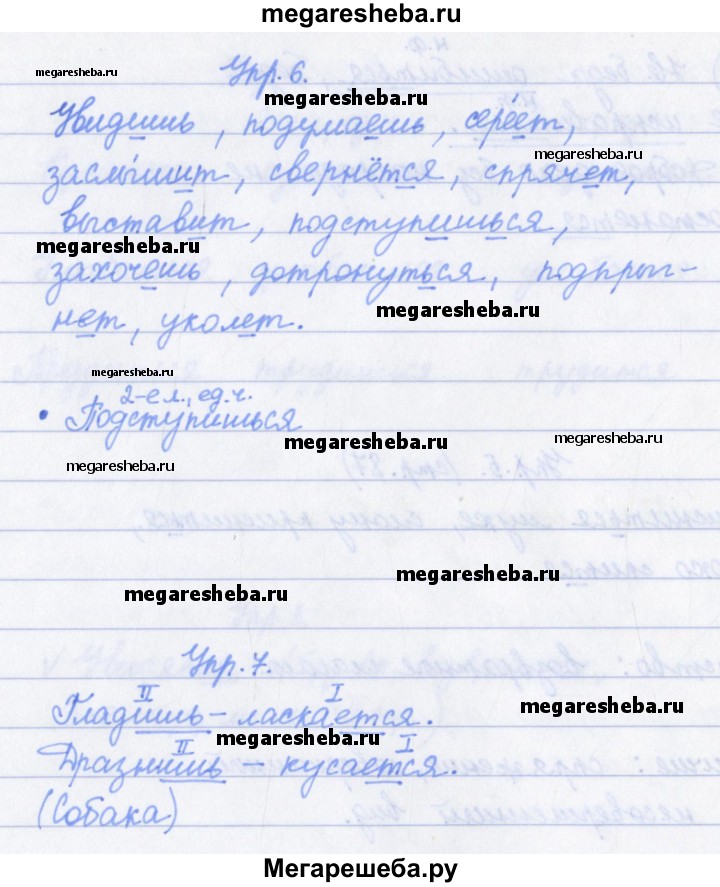 megaresheba.ru
Упр. 6.
megaresheba.ru
megaresheba.ru
Увидишь, подумаешь, сереет,
megaresheba.ru
заслышит, свернётся, спрячет,
выставит, подступишься,
megaresheba.ru
захочешь, дотронуться, подпрыг-
megaresheba.ru
нет, уколет.
megaresheba.ru
2-е л., ед.ч.
• Подступишься
megaresheba.ru
megaresheba.ru
megaresheba.ru
megaresheba.ru
megaresheba.ru
Упр. 7.
II I
Гладишь – ласкается.
megaresheba.ru
megaresheba.ru
II I
Дразнишь – кусается.
(Собака)
Мегарешеба.ру